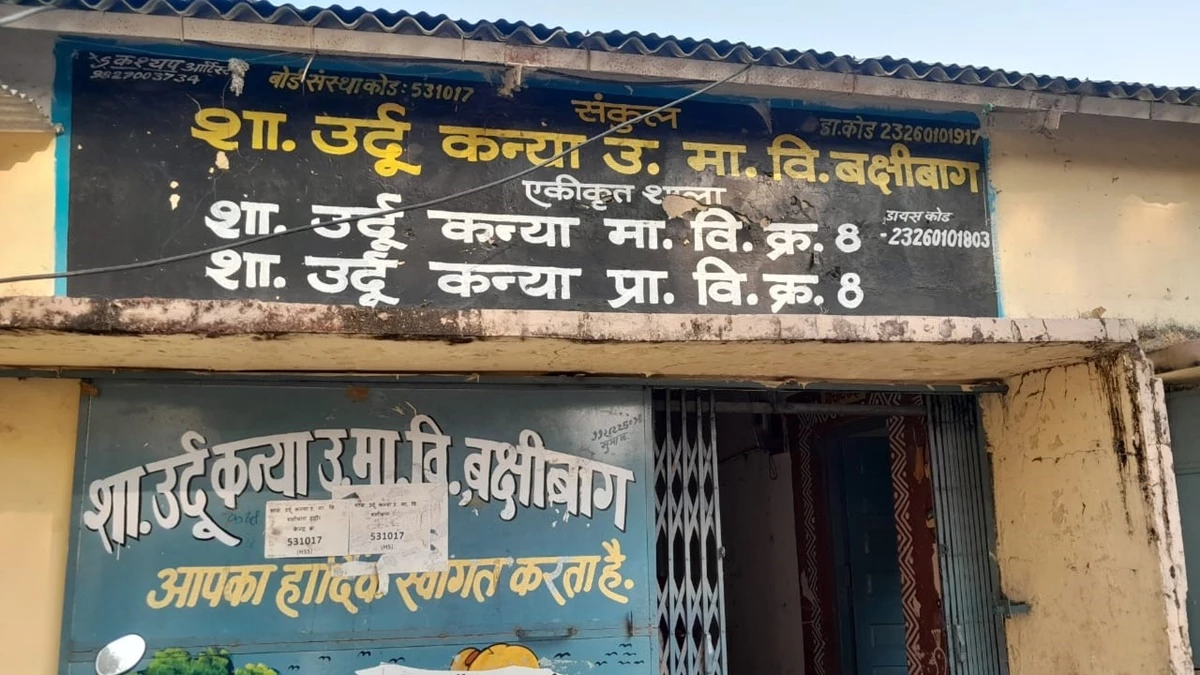 कश्यप
9827003734
बोर्ड संस्था कोड : 531017
संकुल
डा.कोड 23260101917
शा. उर्दू कन्या उ. मा. वि. बक्षीबाग
एकीकृत शाला
शा. उर्दू कन्या मा. वि. क्र. 8
डायस कोड
-23260101803
शा. उर्दू कन्या प्रा. वि. क्र. 8
शा. उर्दू कन्या उ. मा. वि. बक्षीबाग
531017
(HSS)
531017
(HS)
आपका हार्दिक स्वागत करता है.